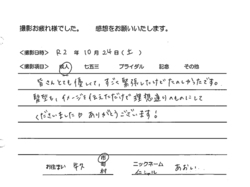 撮影お疲れ様でした。　感想をお願いいたします。
<撮影日時> R2 年 10 月 24 日 (土)
<撮影項目> 成人 七五三 ブライダル 記念 その他
皆さんとても優しくて、すごく緊張したけどたのしかったです。
髪型も、イメージを伝えただけで理想通りのものにして
くださいました。ありがとうございます!
お住まい 市 町 村 ニックネーム あおい